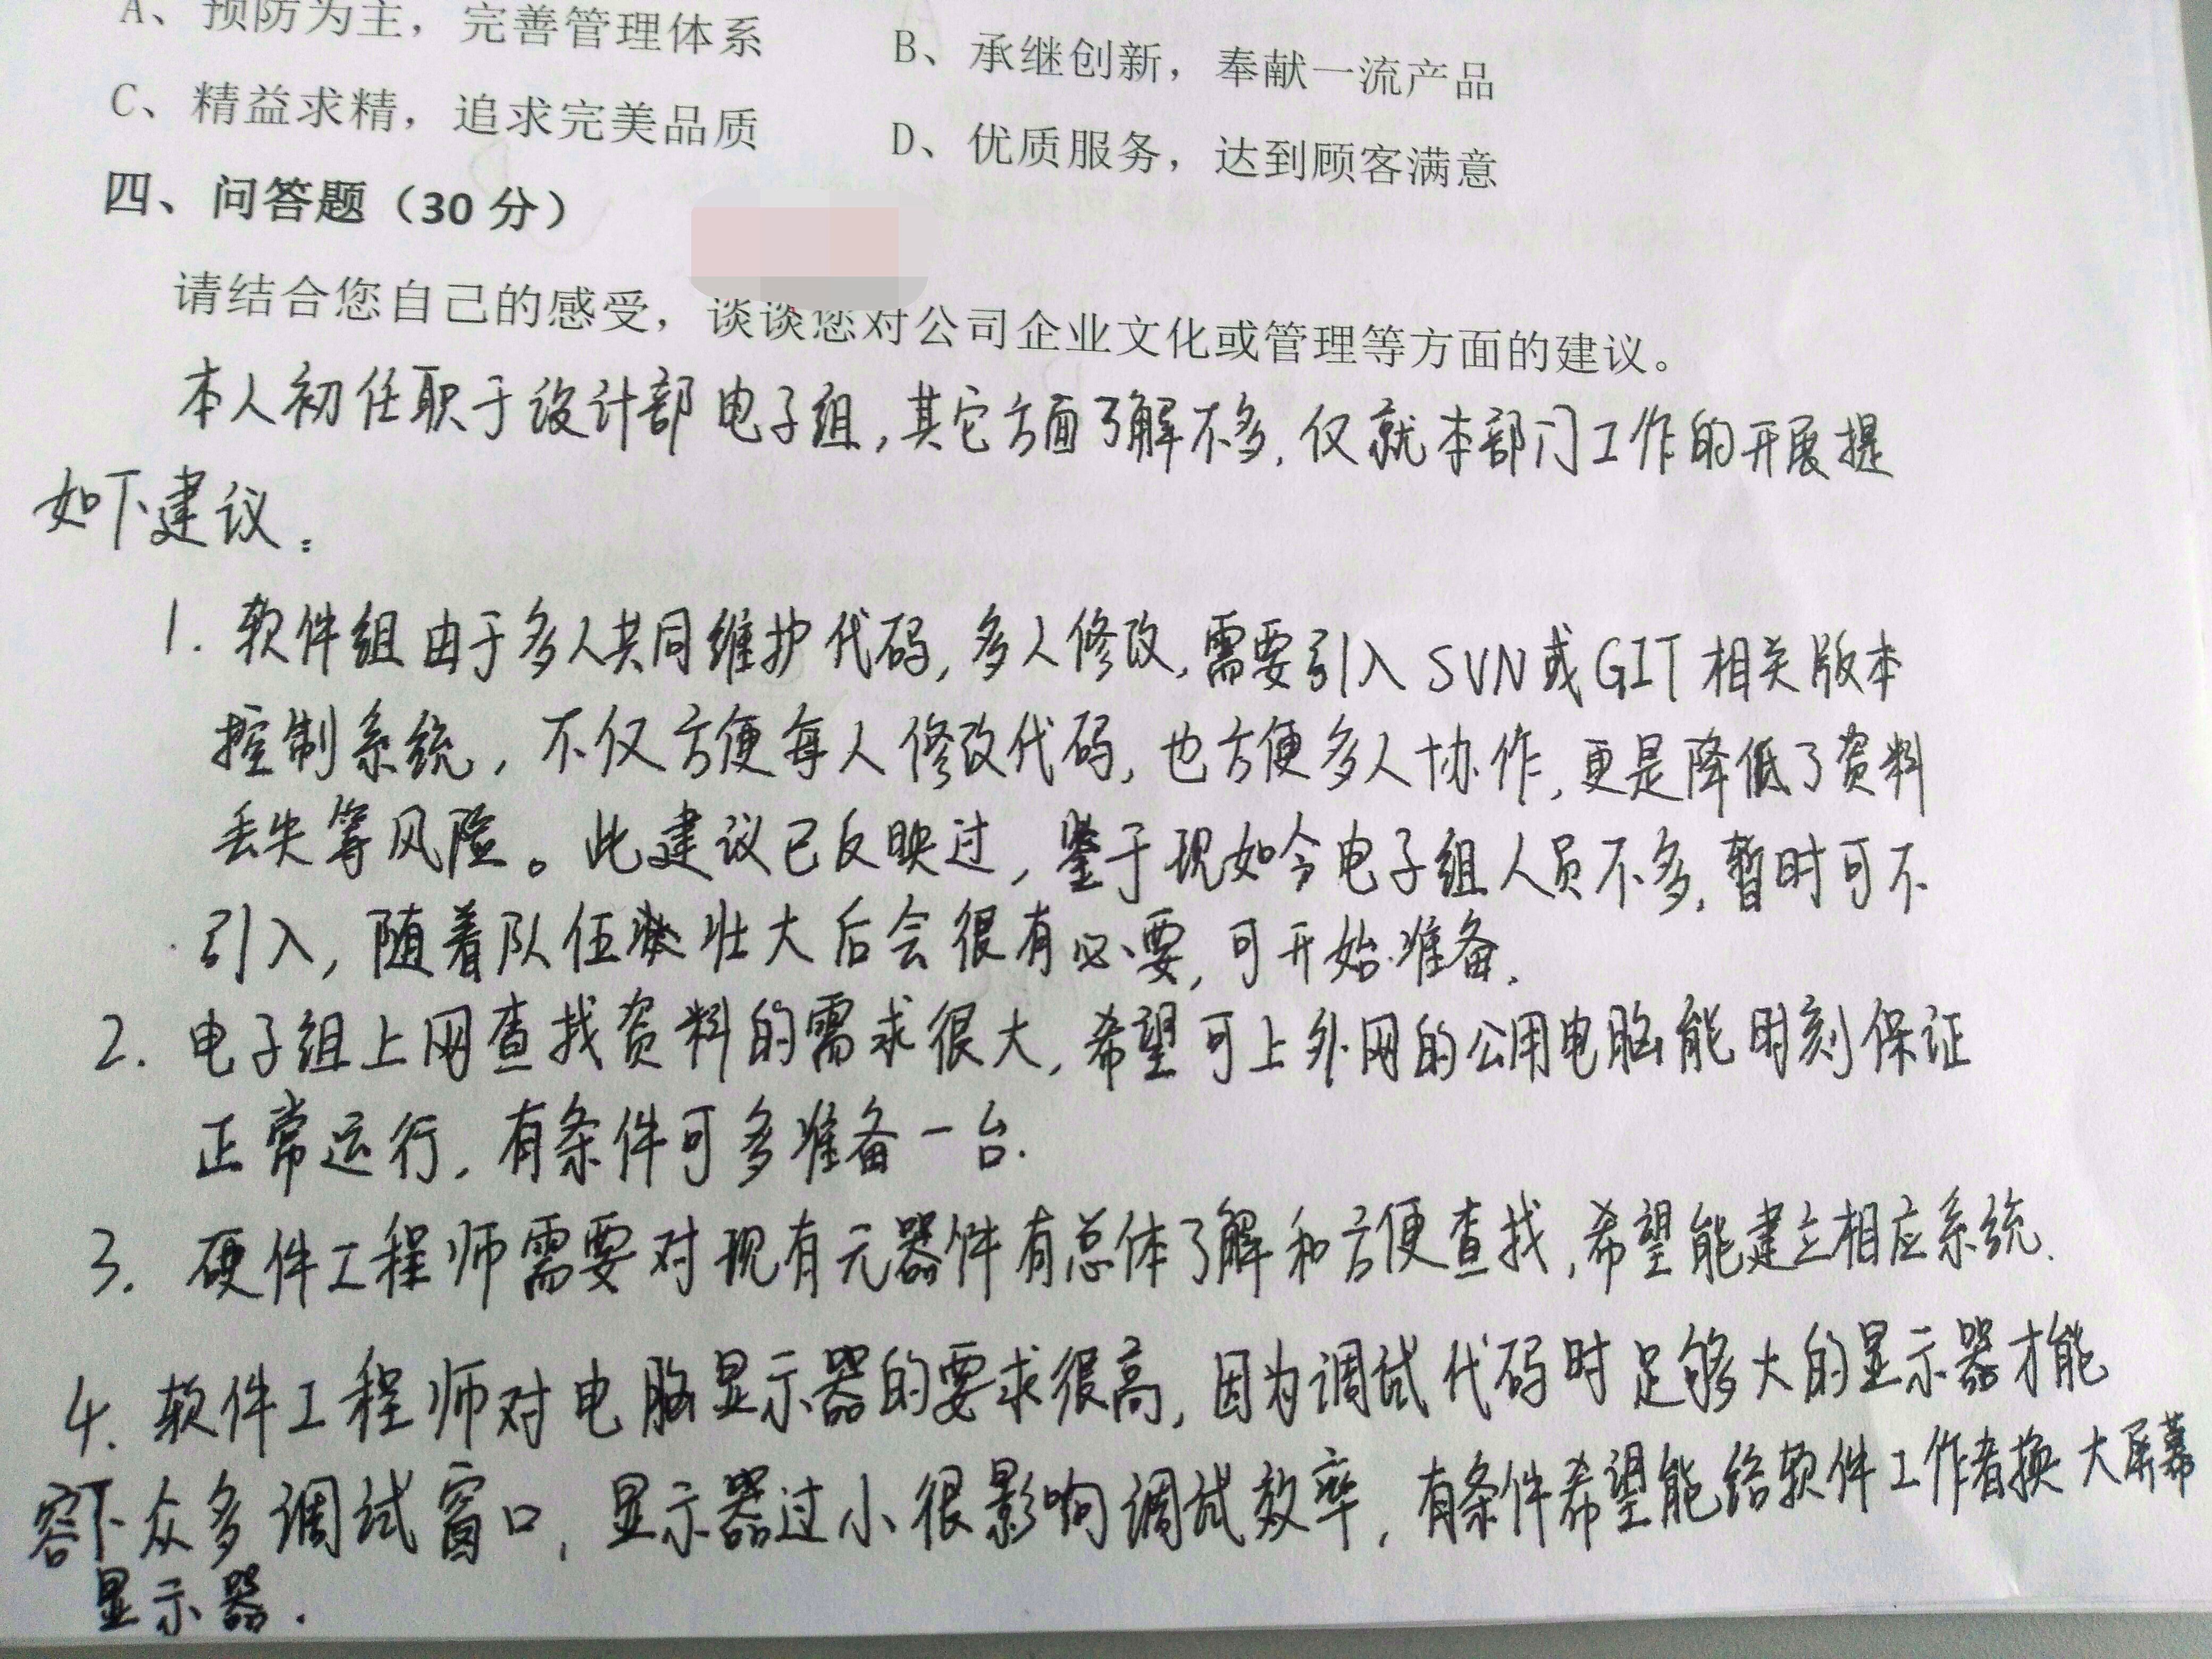 A、预防为主，完善管理体系 B、承继创新，奉献一流产品
C、精益求精，追求完美品质 D、优质服务，达到顾客满意
四、问答题（30 分）
请结合您自己的感受，谈谈您对公司企业文化或管理等方面的建议。
本人初任职于设计部电子组,其它方面了解不多,仅就本部门工作的开展提
如下建议：
1. 软件组由于多人共同维护代码,多人修改,需要引入SVN或GIT相关版本
控制系统,不仅方便每人修改代码,也方便多人协作,更是降低了资料
丢失等风险。此建议已反映过,鉴于现如今电子组人员不多,暂时可不
引入,随着队伍壮大后会很有必要,可开始准备.
2. 电子组上网查找资料的需求很大,希望可上外网的公用电脑能时刻保证
正常运行,有条件可多准备一台.
3. 硬件工程师需要对现有元器件有总体了解和方便查找,希望能建立相应系统.
4. 软件工程师对电脑显示器的要求很高,因为调试代码时足够大的显示器才能
容下众多调试窗口,显示器过小很影响调试效率,有条件希望能给软件工作者换大屏幕
显示器.